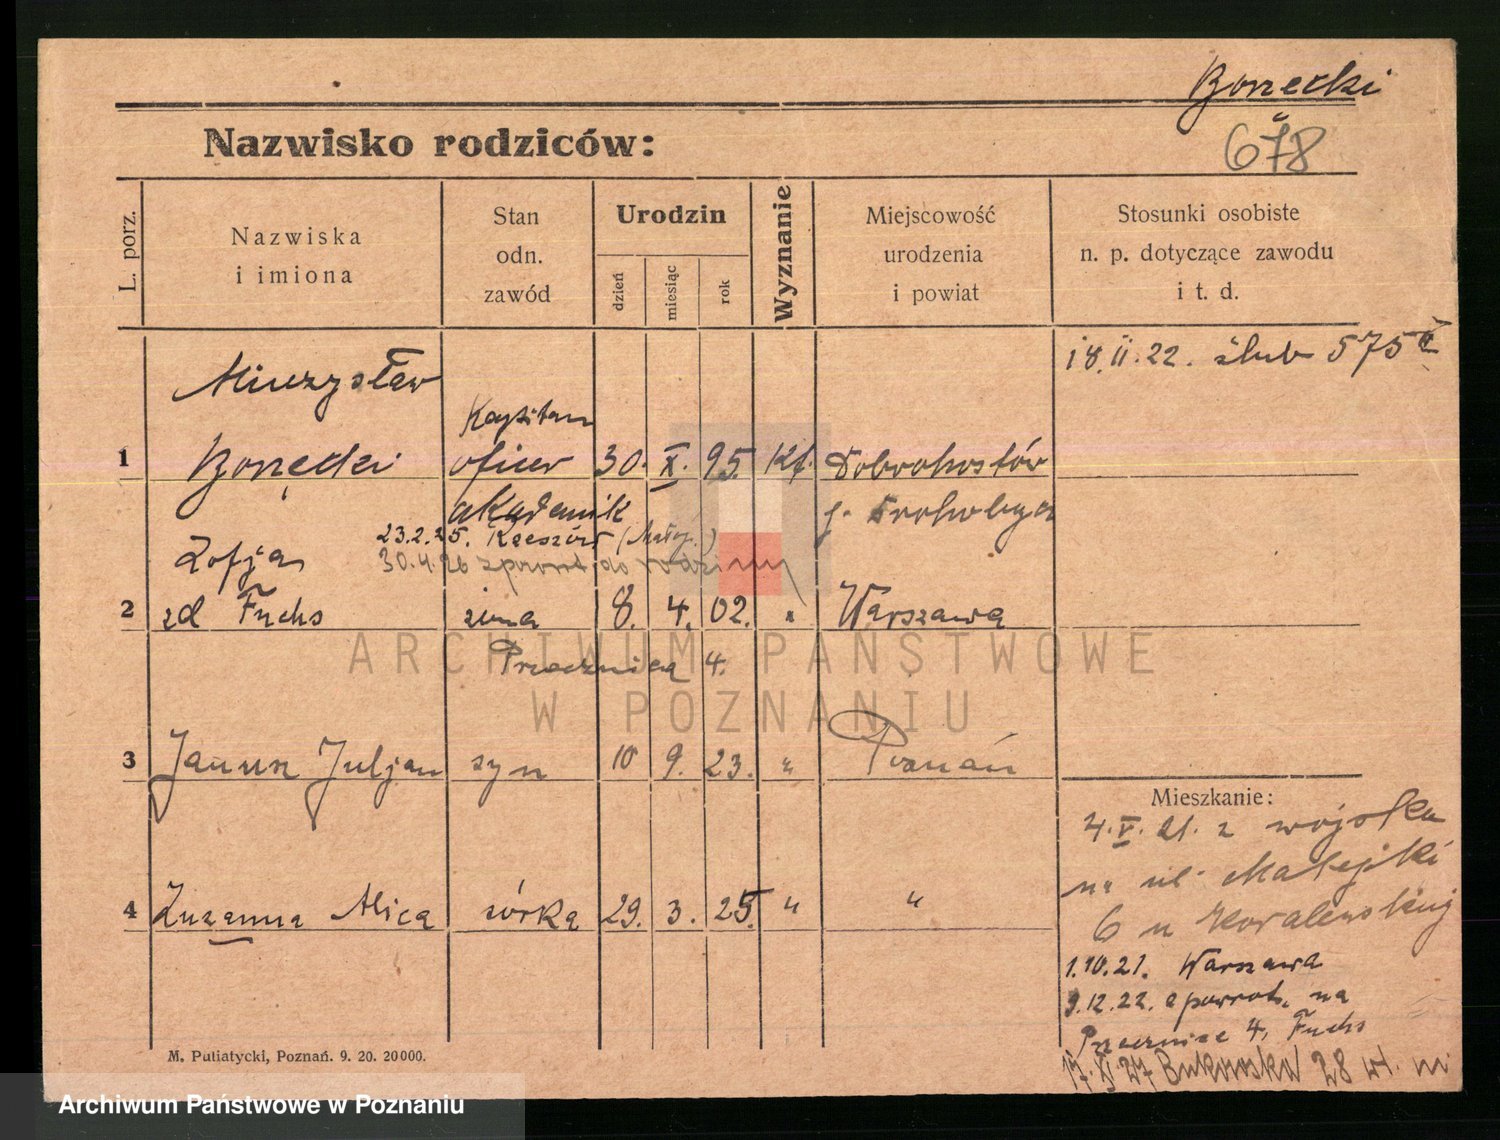 Borzęcki
678
Nazwisko rodziców:
L. porz.
Nazwiska
i imiona
Stan
odn.
zawód
Urodzin
dzień
miesiąc
rok
Wyznanie
Miejscowość
urodzenia
i powiat
Stosunki osobiste
n. p. dotyczące zawodu
i t. d.
18.II.22. ślub 575
Mieczysław
Kapitan
1 Borzęcki oficer 30. X. 95. Kt. Dobrohostów
akademik
23.2.25. Rzeszów (Małop.)
30.4.26 do rodziny
Zofja
2 zd Fuchs żona 8. 4. 02. " Warszawa
Przecznica 4.
ARCHIWUM PAŃSTWOWE
W POZNANIU
3 Janusz Juljan syn 10 9. 23. " Poznań
Mieszkanie:
4.V.21. z wojska
na ul. Matejki
6 u
4 Zuzanna Alica córka 29. 3. 25. " "
1.10.21. Warszawa
9.12.22. z powrot. na
Przecznice 4, Fuchs
17.XI.27 Bukowska 28
M. Putiatycki, Poznań. 9. 20. 20000.
Archiwum Państwowe w Poznaniu